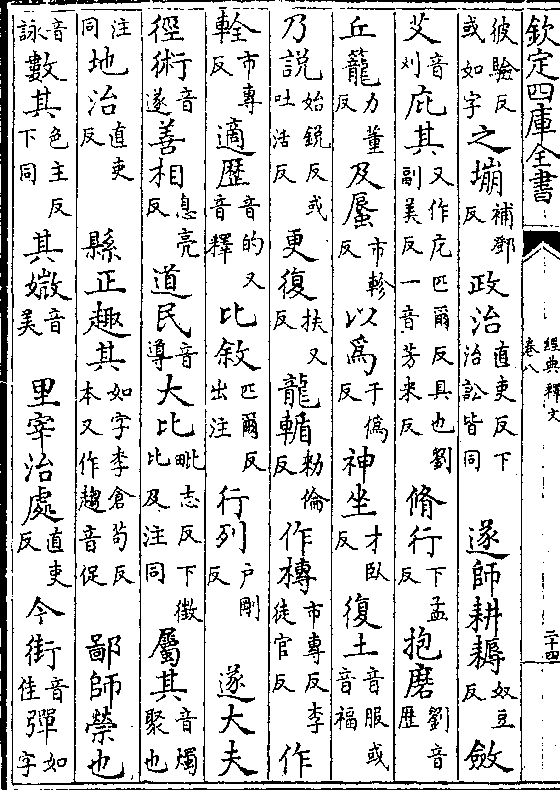 欽定四庫全書 經典釋文 卷八 二十四
彼驗反或如字之堋補鄧反政治直吏反下治訟皆同遂師耕耨奴豆反斂
艾音刈庇其又作庀匹爾反具也劉副美反一音芳米反脩行下孟反抱磨劉音歷
丘籠力董反及蜃市軫反以爲于僞反神坐才臥反復土音服或音福
乃說始銳反或吐活反更復扶又反龍輴勑倫反作槫市專反李徒官反作
輇市專反適歷音的又音釋比敘匹爾反出注行列戶剛反遂大夫
徑術音遂善相息亮反道民音導大比毗志反下徵比及注同屬其音燭聚也
注同地治直吏反縣正趣其如字李倉苟反本又作趨音促鄙師禜也
音詠數其色主反下同其媺音美里宰治處直吏反今街音佳彈如字